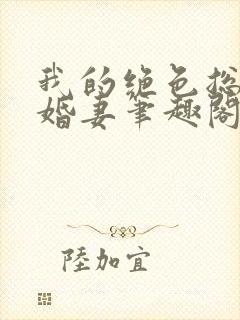 我的绝色总
婚妻笔趣阁
陸加宜